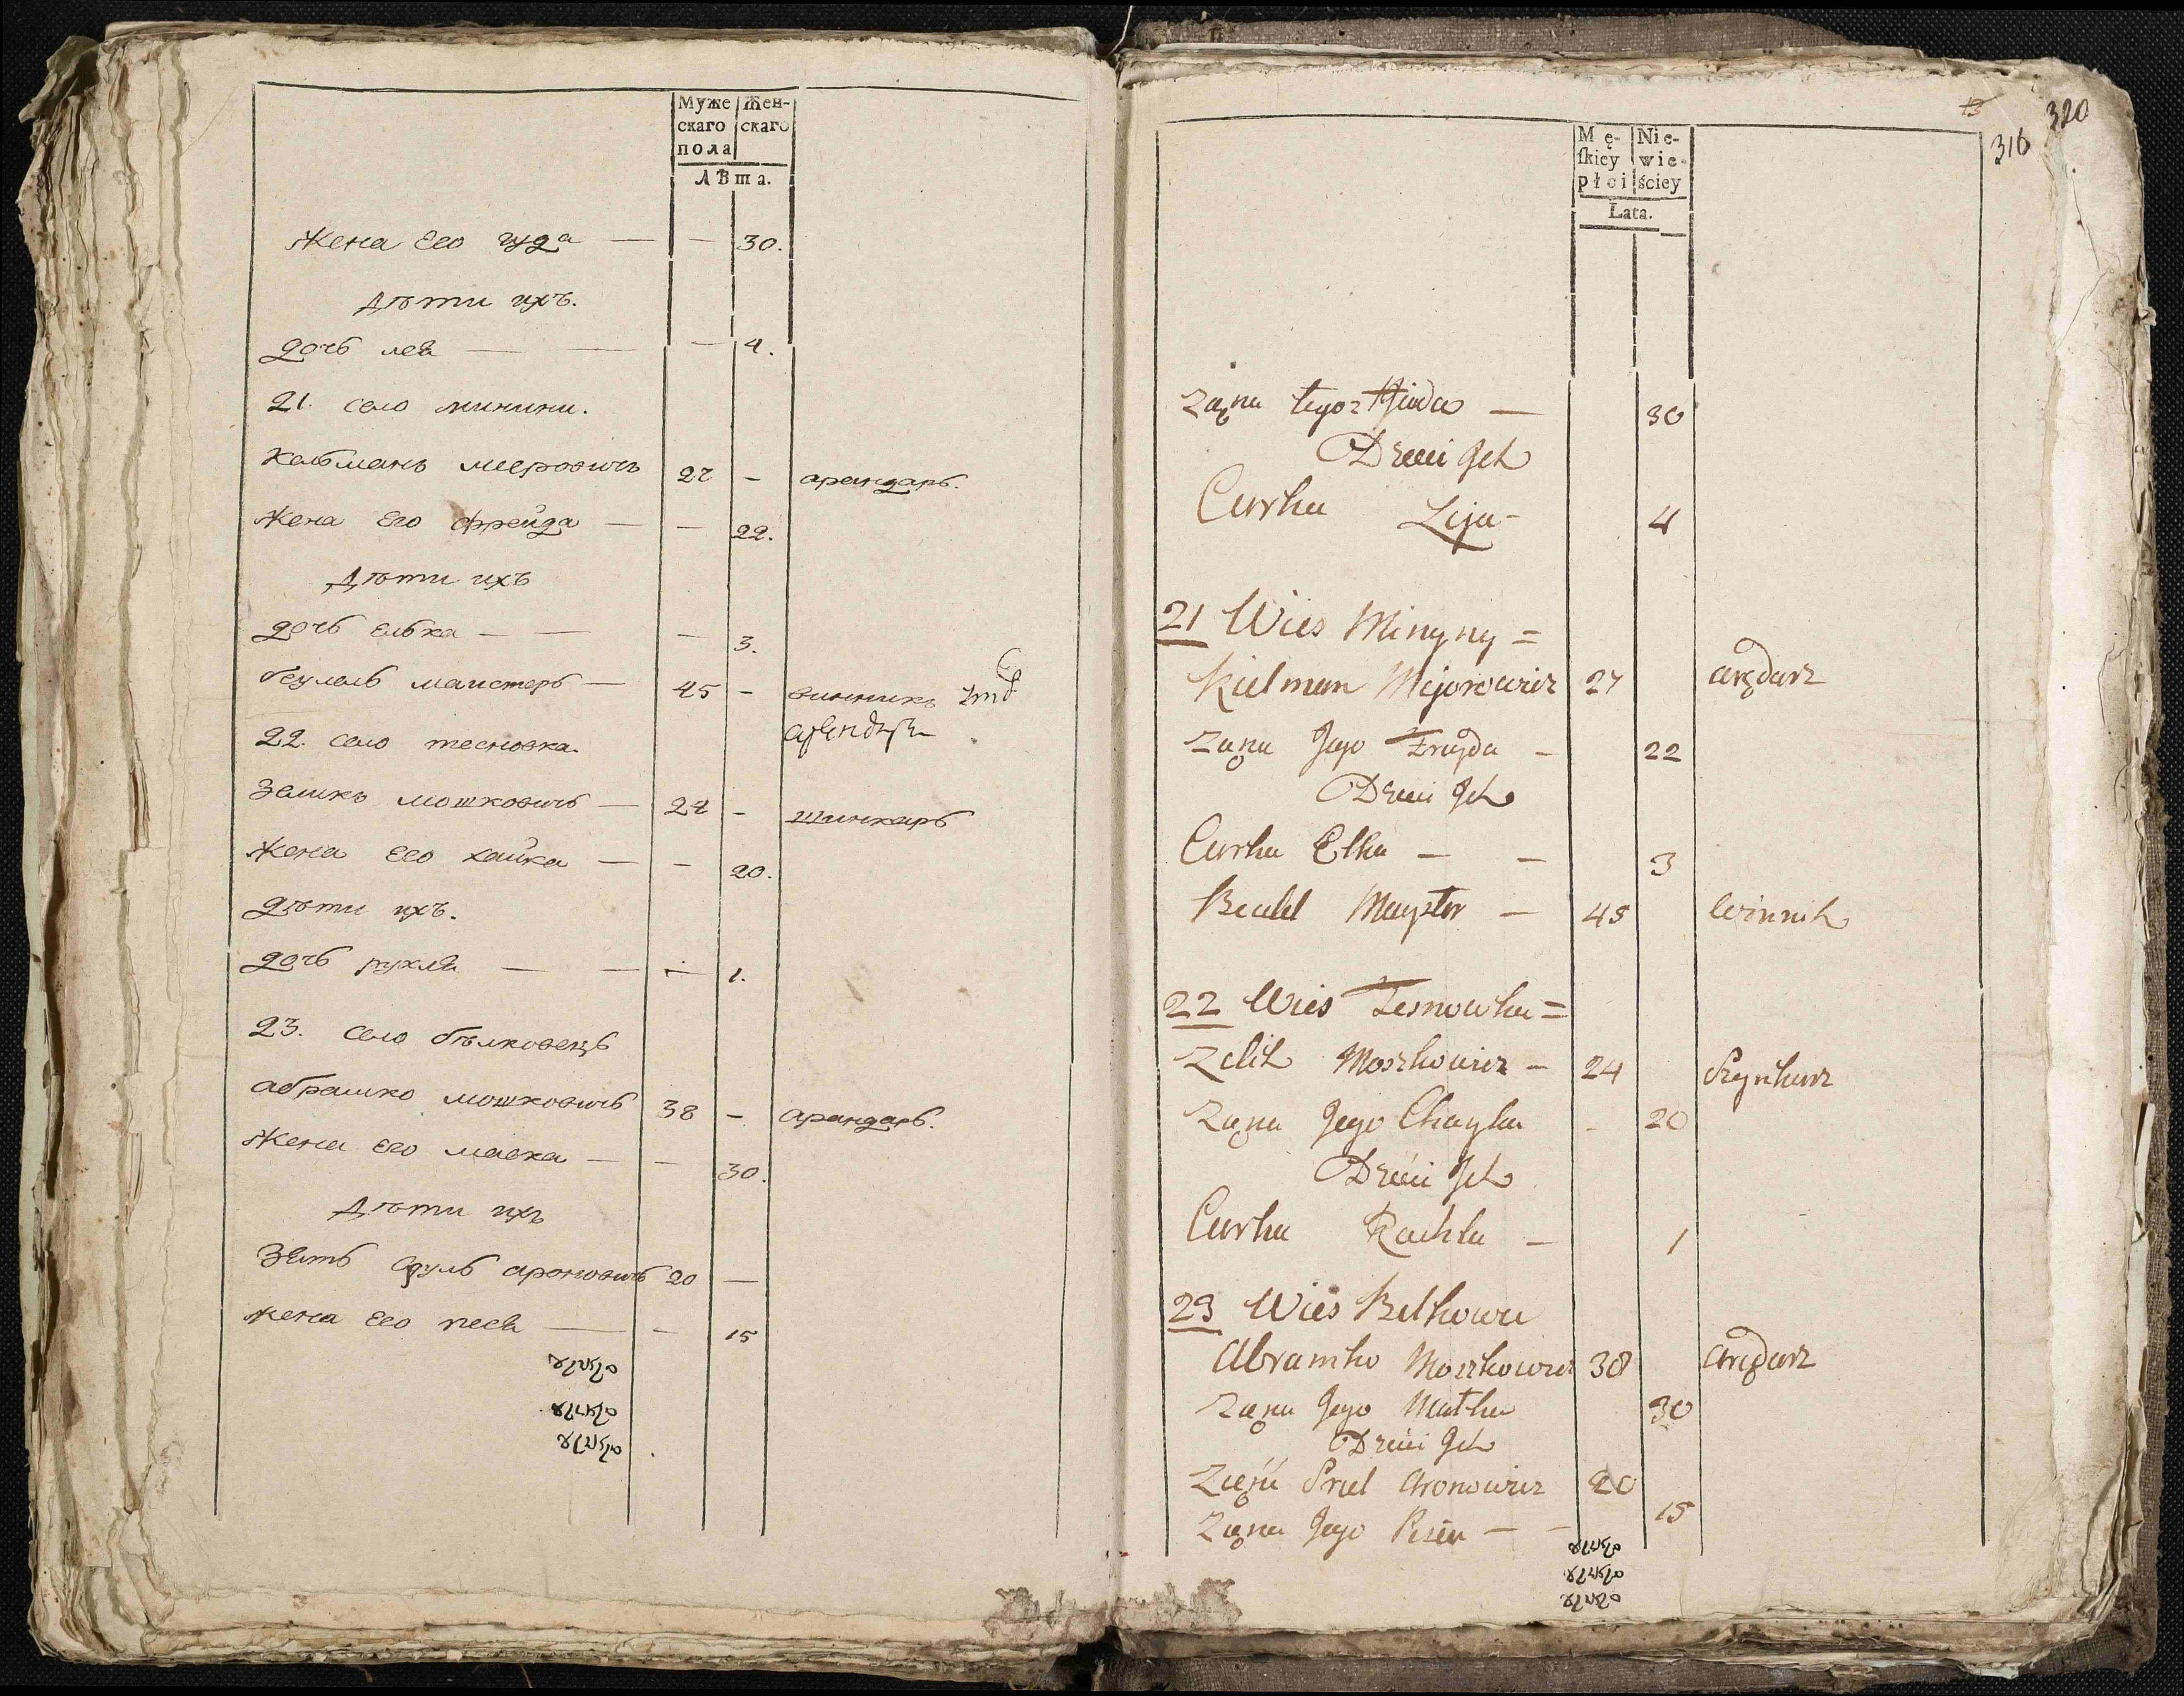 Муже
скаго
пола
Жен-
скаго
лѣта.
Жена Его іуда — — 30.
Дѣти ихъ.
дочь лея — — — 4.
21. село минини.
Кельманъ меѣровичъ 27 - арандарь.
Жена Его фрейда — — 22.
Дѣти ихъ
дочь елька — — — 3.
беулель маистеръ — 45 - винникъ
22. село тесновка.
Зеликъ мошковичъ — 24 - шинкарь
Жена Его хайка — — 20.
дѣти ихъ.
дочь рухля — — — 1.
23. село бѣлковецъ
абрамко мошковичъ 38 - арандарь.
Жена Его малка — — 30.
Дѣти ихъ
Зять сруль ароновичъ 20 —
жена Его песя — — 15
13
320
316
Mę-
ſkiey
płci
Nie-
wie-
ściey
Lata.
Zona tegoz Hiuda — 30
Dzieci Ich
Curka Leja - 4
21 Wieś Minyny =
Kielman Mejorowicz 27 arędarz
Zona Jego Frayda - 22
Dzieci Ich
Curka Elka — — 3
Bealel Mayster — 45 Winnik
22 Wieś Tesnowka =
Zelik Moszkowicz - 24 Szynkarz
Zona Jego Chayka - 20
Dzieci Ich
Curka Rachla — 1
23 Wieś Belkowce
Abramko Moszkowicz 38 arędarz
Zona Jego Matka 30
Dzieci Ich
Zięć Srul Aronowicz 20
Zona Jego Pesia — — 15